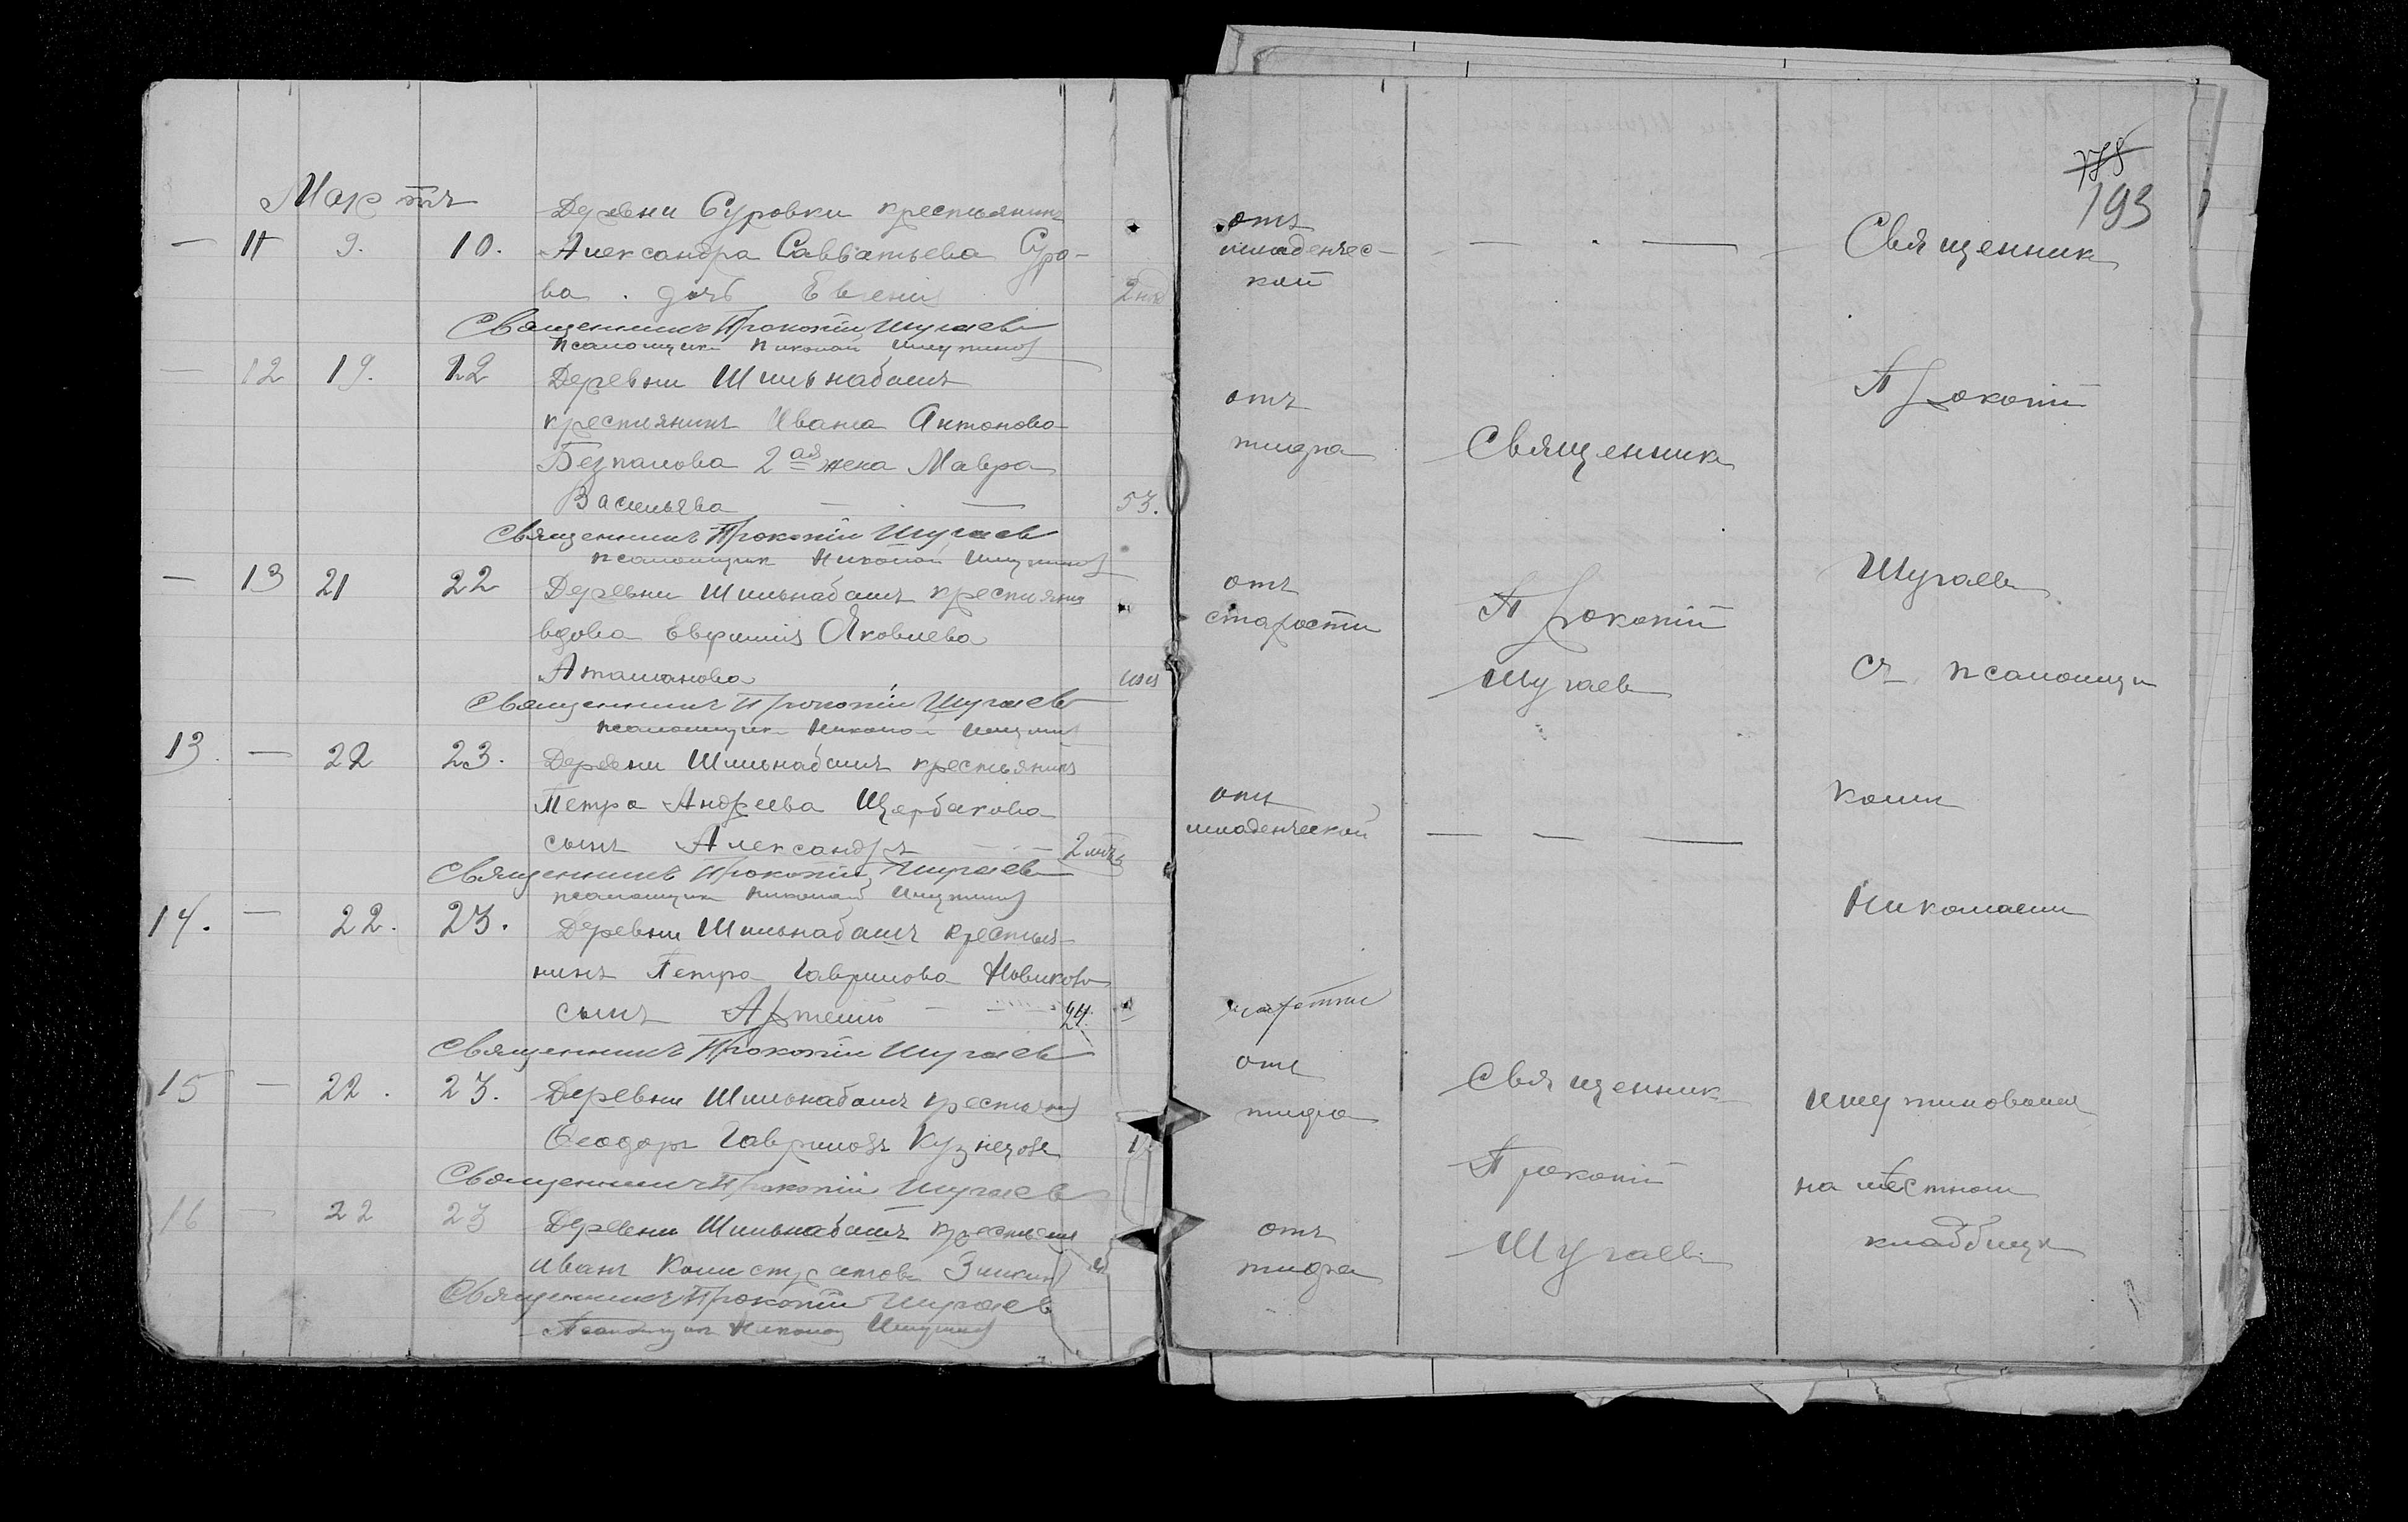 Мартъ
Деревни Суровки крестьянинъ
— 11 9. 10. Александра Савватьева Суро-
ва . дочь Евгенія 2 нед
Священникъ Прокопій Шугаевъ
Псаломщикъ Николай
— 12 19. 22 Деревни Шильнабашъ
крестьянинъ Ивана Антонова
Безпалова 2ая жена Мавра
Васильева — — 53.
Священникъ Прокопій Шугаевъ
псаломщикъ Николай
— 13 21 22 Деревни Шильнабашъ крестьянка
вдова Евфимія Яковлева
Атаманова
Священникъ Прокопій Шугаевъ
псаломщикъ Николай
13. — 22 23. Деревни Шильнабашъ крестьянинъ
Петра Андреева Щербакова
сынъ Александръ — — 2
Священникъ Прокопій Шугаевъ
псаломщикъ Николай
14. — 22. 23. Деревни Шильнабашъ крестья-
нинъ Петра Гаврилова Новикова
сынъ Артемій — —
Священникъ Прокопій Шугаевъ
15 — 22. 23. Деревни Шильнабашъ крестьянинъ
Ѳеодоръ Гавриловъ Кузнецовъ
Священникъ Прокопій Шугаевъ
16 — 22 23 Деревни Шильнабашъ крестьянинъ
Иванъ Зыкинъ
Священникъ Прокопій Шугаевъ
Псаломщикъ Николай
193
отъ
младенчес-
кой
— . —
отъ
тифа
отъ
старости
отъ
младенческой
— — —
отъ
тифа
отъ
тифа
Священникъ
Прокопій
Шугаевъ
Священникъ
Прокопій
Шугаевъ
Священникъ
Прокопій
Шугаевъ
съ псаломщи
комъ
Николаемъ
на мѣстномъ
кладбищѣ